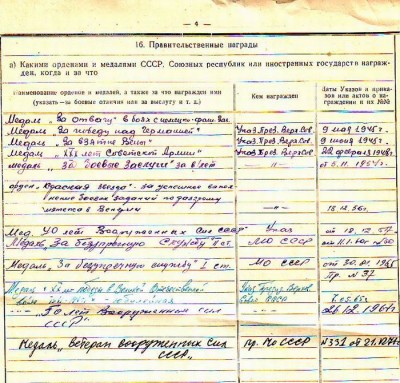 — 4 —
16. Правительственные награды
а) Какими орденами и медалями СССР, Союзных республик или иностранных государств награжден, когда и за что
Наименование орденов и медалей, а также за что награжден ими (указать — за боевые отличия или за выслугу и т. д.)
Кем награжден
Даты Указов и приказов или актов о награждении и их №№
Медаль „За отвагу" в боях с
Медаль „За победу над Германией" Указ През. Верх Сов. 9 мая 1945 г.
Медаль „За взятие Вены" Указ През. Верх Сов. 9 июня 1945 г.
Медаль „XXX лет Советской Армии" Указ През. Верх Сов 22 февраля 1948 г.
медаль „За боевые Заслуги" за
орден „Красная звезда" за успешное выполнение боевых заданий по
мятежа в Венгрии —"— 18.12.56 г.
Мед. 40 лет Вооруженных Сил СССР Указ от 18.12.57 г.
Медаль „За безупречную Службу II ст. МО СССР
Медаль „За безупречную службу" I ст. МО СССР
Пр. № 97
Медаль „XX лет победы в Великой Отечественной войне
7.05.65 г.
—"— „50 лет Вооруженных сил СССР" 26.12.1967 г.
Медаль „Ветеран вооруженных сил СССР" пр. Мо СССР №331 от 21.12.